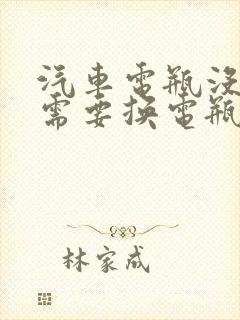 汽車電瓶沒
需要换電瓶
林家成